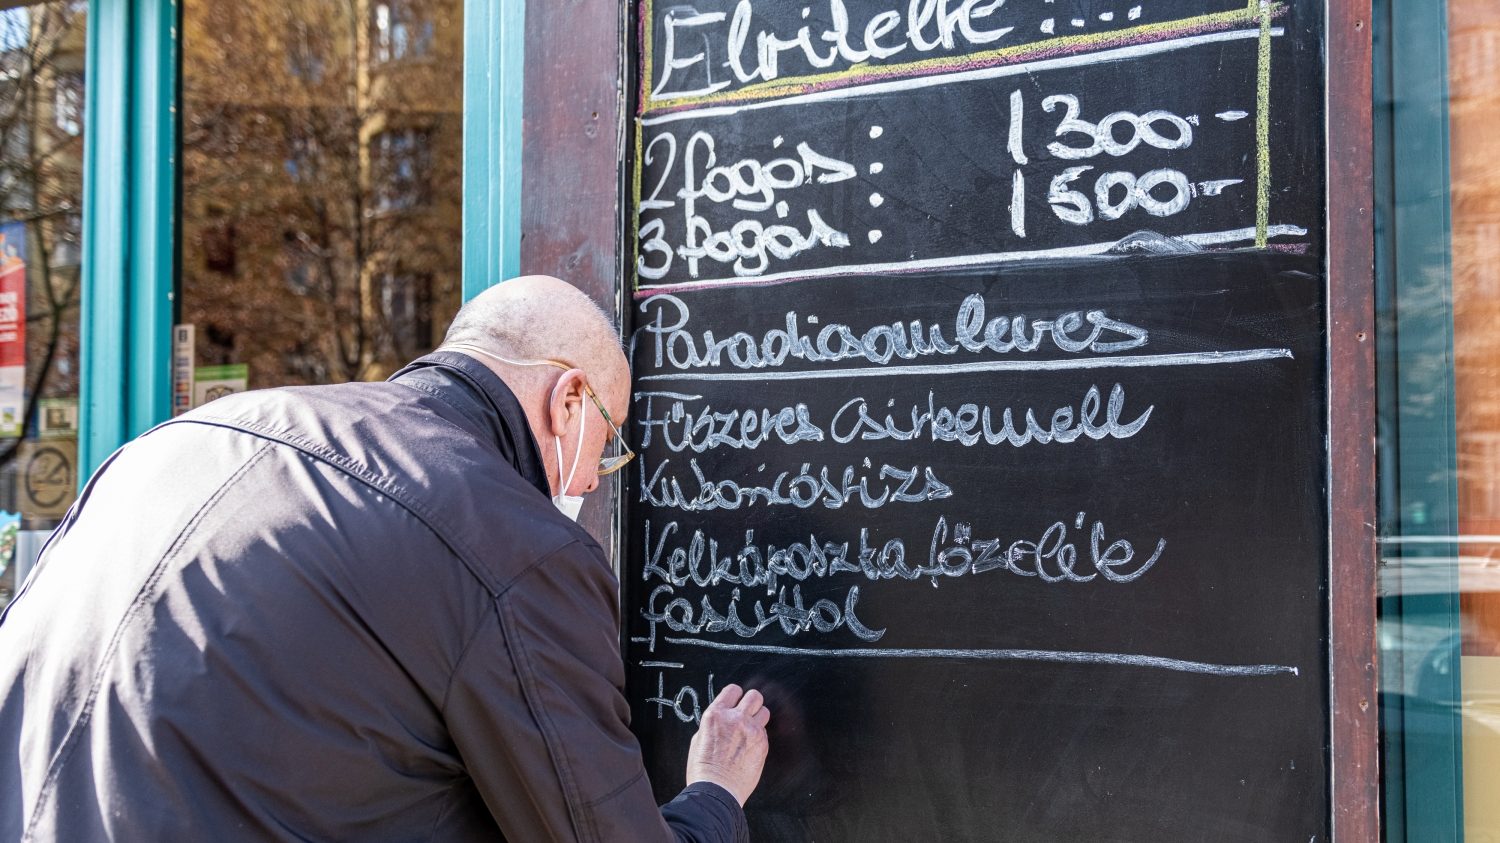 Elvitelre :...
2 fogós : 1300-
3 fogós : 1500-
Paradicsomleves
Fűszeres csirkemell
Kuboncóstizs
Kelkáposzta főzelék
fasirttal
Fa